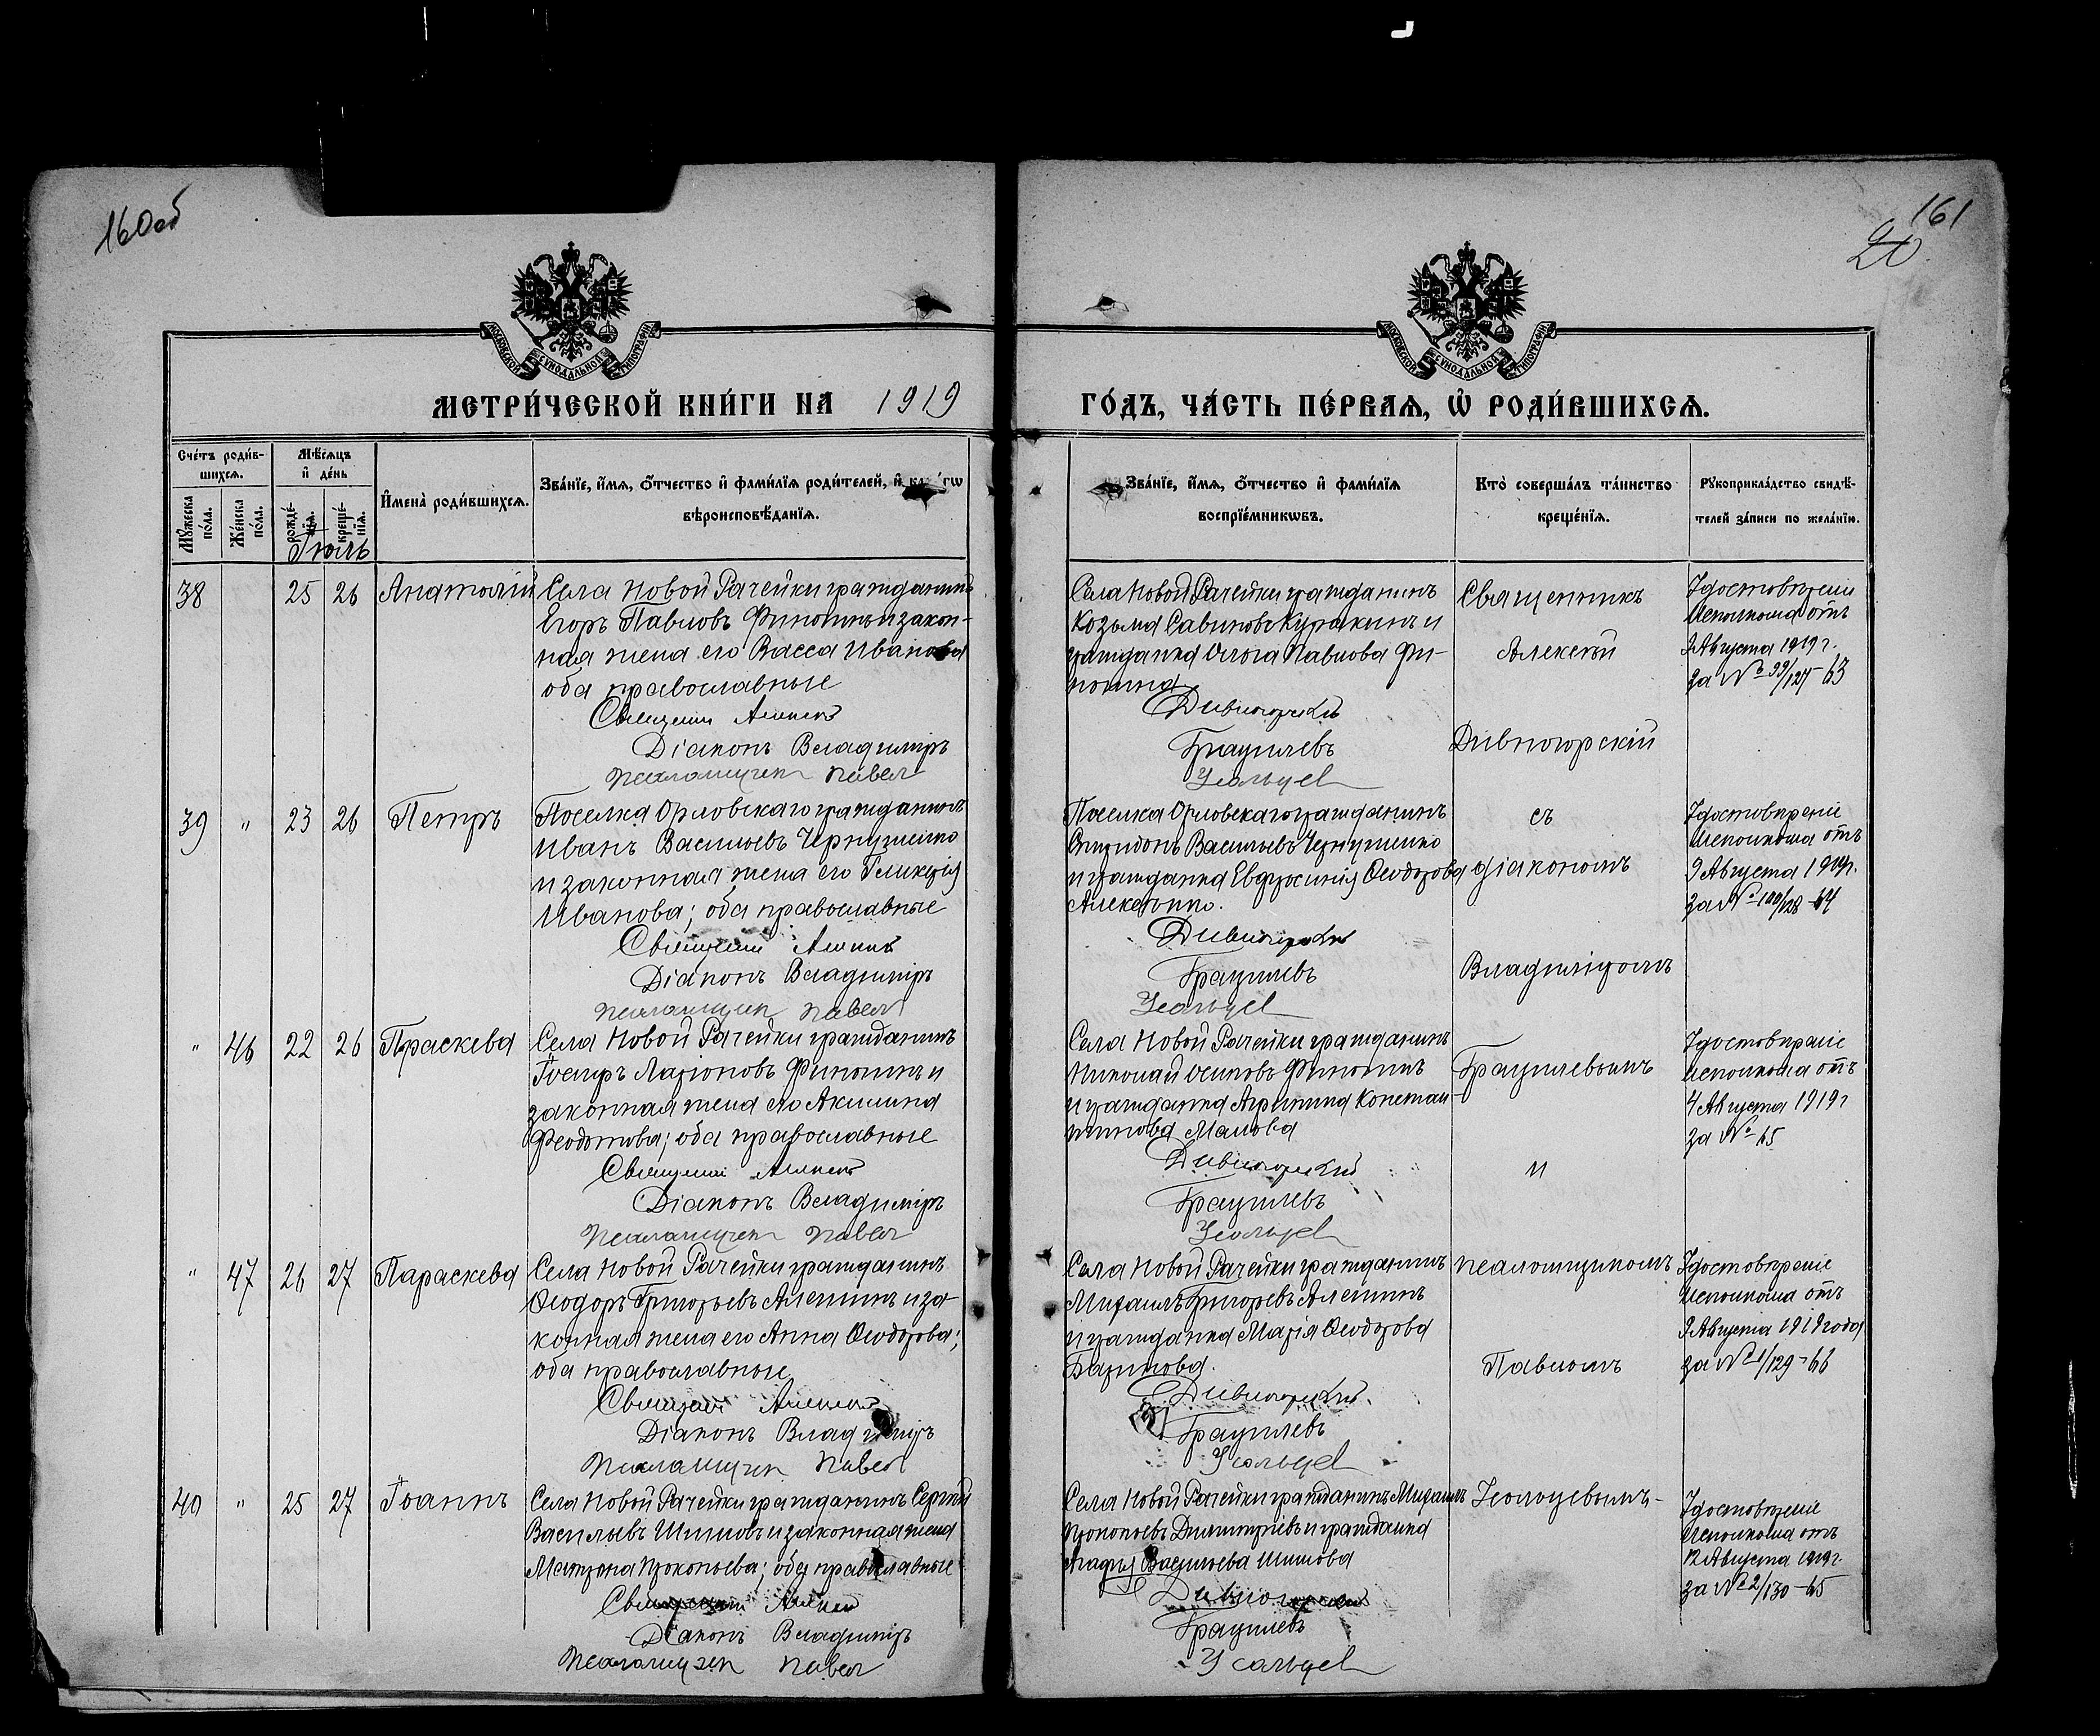 160об
161
20
МОСКОВСКОЙ СУНОДАЛЬНОЙ ТИПОГРАФІИ
МОСКОВСКОЙ СУНОДАЛЬНОЙ ТИПОГРАФІИ
МЕТРИ́ЧЕСКОЙ КНИ́ГИ НА 1919
ГО́ДЪ, ЧА́СТЬ ПЕ́РВАѦ, Ѡ҆ РОДИ́ВШИХСѦ.
Сче́тъ роди́в-
шихсѧ.
Мѣ́сѧцъ
и҆ де́нь
Мꙋ́жеска по́ла.
Же́нска по́ла.
рожде́-нїѧ.
креще́-нїѧ.
И҆мена̀ роди́вшихсѧ.
Зва́нїе, и҆́мѧ, ѻ҆́тчество и҆ фами́лїѧ роди́телей, и҆
вѣроисповѣ́данїѧ.
Зва́нїе, и҆́мѧ, ѻ҆́тчество и҆ фами́лїѧ
воспрїе́мникѡвъ.
Кто̀ соверша́лъ та́инство
креще́нїѧ.
Рꙋкоприкла́дство свидѣ́-
телей за́писи по жела́нїю.
Іюль
38 25 26 Анатолій
Села Новой Рачейки гражданинъ
Егоръ Павловъ Финогинъ и закон-
ная жена его Васса Иванова
оба православные
Священ Алексѣй
Діаконъ Владиміръ
Псаломщик Павел
Села Новой Рачейки гражданинъ
Козьма Савиновъ Куракинъ и
гражданка Ольга Павлова Фи-
ногина
Дивногорскій
Грацилевъ
Усольцев
Священникъ
Алексѣй
Дивногорскій
Удостовѣреніе
Исполкома отъ
9 Августа 1919 г.
за № 99/127-63
39 " 23 26 Петръ
Поселка Орловскаго гражданинъ
Иванъ Васильевъ Чернушенко
и законная жена его Гликерія
Иванова; оба православные
Священ Алексѣй
Діаконъ Владиміръ
Псаломщик Павел
Поселка Орловскаго гражданинъ
Спиридонъ Васильевъ Чернушенко
и гражданка Евфросинія Ѳеодорова
Алексѣенко.
Дивногорскій
Грацилевъ
Усольцев
съ
діакономъ
Владиміромъ
Удостовѣреніе
Исполкома отъ
9 Августа 1919г.
за № 100/128-64
" 46 22 26 Праскева
Села Новой Рачейки гражданинъ
Іосифъ Ларіоновъ Финогинъ и
законная жена его Акилина
Феодотова; оба православные
Священ Алексѣй
Діаконъ Владиміръ
Псаломщик Павел
Села Новой Рачейки гражданинъ
Николай Осиповъ Финогинъ
и гражданка Агрипина Констан-
тинова Малова
Дивногорскій
Грацилевъ
Усольцев
Грацилевымъ
и
Удостовѣреніе
Исполкома отъ
4 Августа 1919 г
за № 65
" 47 26 27 Параскева
Села Новой Рачейки гражданинъ
Ѳеодоръ Григорьевъ Алешинъ и за-
конная жена его Анна Ѳеодорова;
оба православные
Священ Алексѣй
Діаконъ Владиміръ
Псаломщик Павел
Села Новой Рачейки гражданинъ
Михаилъ Григорьевъ Алешинъ
и гражданка Марія Ѳеодорова
Дивногорскій
Грацилевъ
Усольцев
псаломщикомъ
Павломъ
Удостовѣреніе
Исполкома отъ
9 Августа 1919 года
за № 1/129-66
40 " 25 27 Іоаннъ
Села Новой Рачейки гражданинъ Сергѣй
Васильевъ Шишовъ и законная жена
Матрона Прокопьева; оба православные
Священ Алексѣй
Діаконъ Владиміръ
Псаломщик Павел
Села Новой Рачейки гражданинъ Михаилъ
Прокопьевъ Димитріевъ и гражданка
Васильева Шишова
Дивногорскій
Грацилевъ
Усольцев
Усольцевымъ
Удостовѣреніе
Исполкома отъ
12 Августа 1919г.
за № 2/130-65